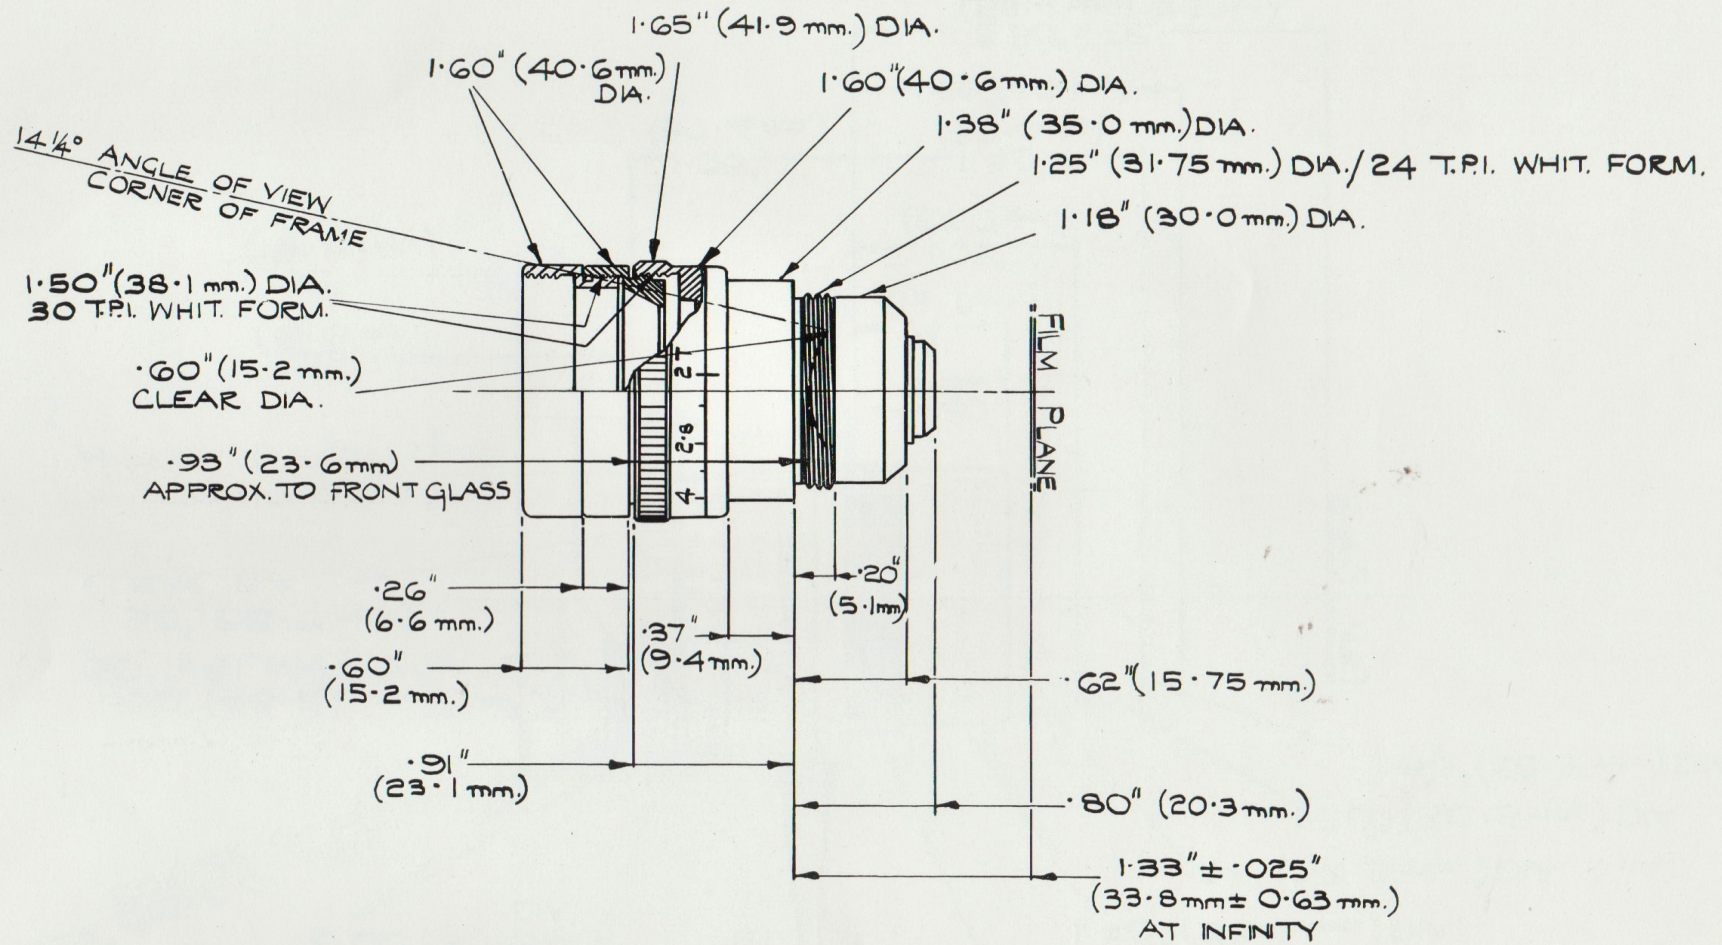 1.65" (41.9 mm.) DIA.
1.60" (40.6 mm.)
DIA.
1.60" (40.6 mm.) DIA.
1.38" (35.0 mm.) DIA.
1.25" (31.75 mm.) DIA./24 T.P.I. WHIT. FORM.
1.18" (30.0 mm.) DIA.
14¼° ANGLE OF VIEW
CORNER OF FRAME
1.50" (38.1 mm.) DIA.
30 T.P.I. WHIT. FORM.
.60" (15.2 mm.)
CLEAR DIA.
.93" (23.6 mm)
APPROX. TO FRONT GLASS
T
2
2.8
4
FILM PLANE
.26"
(6.6 mm.)
.60"
(15.2 mm.)
.37"
(9.4 mm.)
.20"
(5.1mm)
.62" (15.75 mm.)
.91"
(23.1 mm.)
.80" (20.3 mm.)
1.33" ± .025"
(33.8 mm ± 0.63 mm.)
AT INFINITY